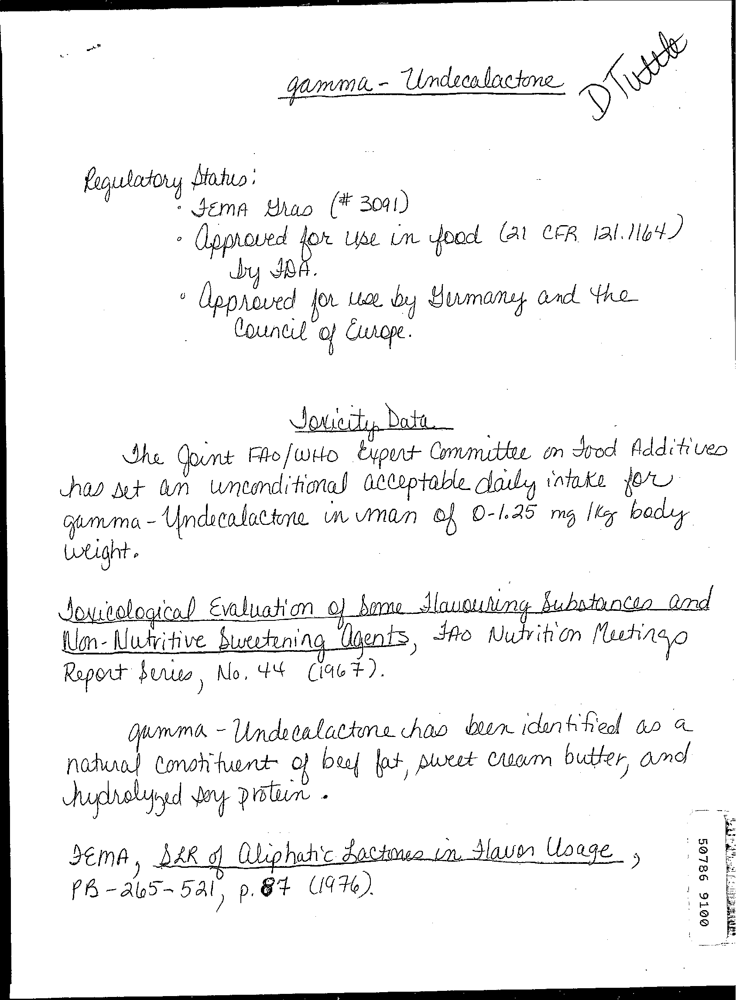 gamma - Undecalactone
D Tuttle
Regulatory Status:
• FEMA Gras (# 3091)
• Approved for use in food (21 CFR 121.1164)
by FDA.
• Approved for use by Germany and the
Council of Europe.
Toxicity Data
The Joint FAO/WHO Expert Committee on Food Additives
has set an unconditional acceptable daily intake for
gamma-Undecalactone in man of 0-1.25 mg/kg body
weight.
Toxicological Evaluation of Some Flavouring Substances and
Non-Nutritive Sweetening Agents, FAO Nutrition Meetings
Report Series, No. 44 (1967).
gamma-Undecalactone has been identified as a
natural constituent of beef fat, sweet cream butter, and
hydrolyzed soy protein.
FEMA, SLR of Aliphatic Lactones in Flavor Usage,
PB-265-521, p. 87 (1976).
50786 9100